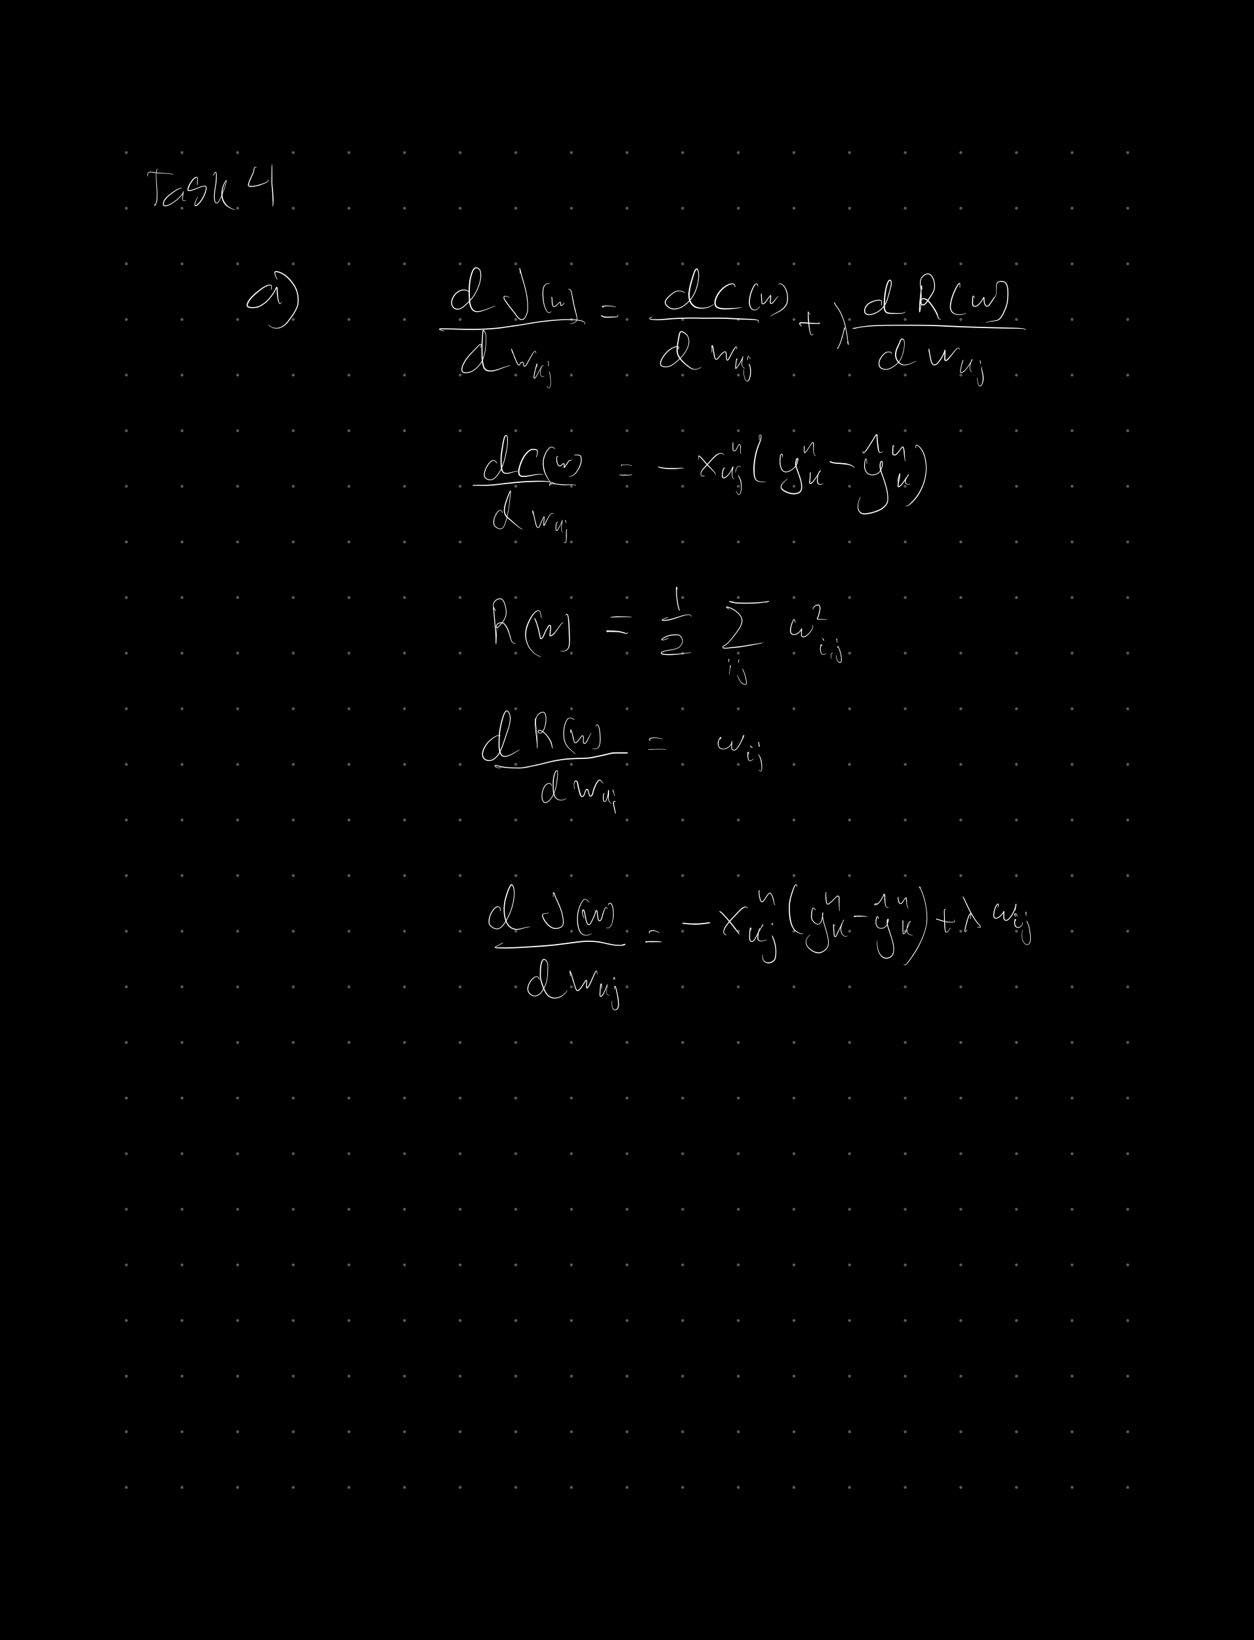 Task 4
a) dJ(w)/dw_kj = dC(w)/dw_kj + λ dR(w)/dw_kj
dC(w)/dw_kj = -x^n_kj (y^n_k - ŷ^n_k)
R(w) = 1/2 Σ_ij w²_i,j
dR(w)/dw_kj = w_ij
dJ(w)/dw_kj = -x^n_kj (y^n_k - ŷ^n_k) + λ w_ij